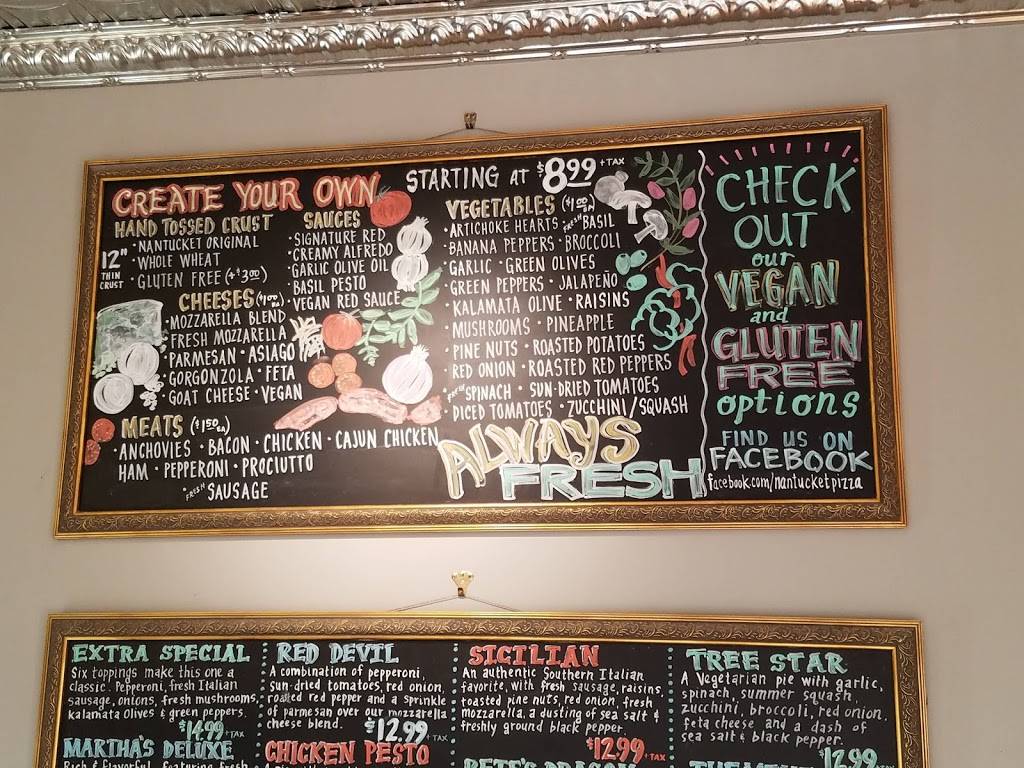 CREATE YOUR OWN
STARTING AT $8.99 + TAX
HAND TOSSED CRUST
12"
THIN
CRUST
• NANTUCKET ORIGINAL
• WHOLE WHEAT
• GLUTEN FREE (+$3.00)
SAUCES
• SIGNATURE RED
• CREAMY ALFREDO
• GARLIC OLIVE OIL
• BASIL PESTO
• VEGAN RED SAUCE
CHEESES ($1.00 EA)
• MOZZARELLA BLEND
• FRESH MOZZARELLA
• PARMESAN • ASIAGO
• GORGONZOLA • FETA
• GOAT CHEESE • VEGAN
MEATS ($1.50 EA)
ANCHOVIES • BACON • CHICKEN • CAJUN CHICKEN
HAM • PEPPERONI • PROCIUTTO
• FRESH SAUSAGE
VEGETABLES ($1.00 EA)
• ARTICHOKE HEARTS • FRESH BASIL
• BANANA PEPPERS • BROCCOLI
• GARLIC • GREEN OLIVES
• GREEN PEPPERS • JALAPEÑO
• KALAMATA OLIVE • RAISINS
• MUSHROOMS • PINEAPPLE
• PINE NUTS • ROASTED POTATOES
• RED ONION • ROASTED RED PEPPERS
• FRESH SPINACH • SUN-DRIED TOMATOES
• DICED TOMATOES • ZUCCHINI/SQUASH
ALWAYS
FRESH
CHECK
OUT
our
VEGAN
and
GLUTEN
FREE
options
FIND US ON
FACEBOOK
facebook.com/nantucketpizza
EXTRA SPECIAL
Six toppings make this one a
classic. Pepperoni, fresh Italian
sausage, onions, fresh mushrooms,
kalamata olives & green peppers.
$14.99 + TAX
MARTHA'S DELUXE
Rich & flavorful, featuring fresh
RED DEVIL
A combination of pepperoni,
sun-dried tomatoes, red onion,
roasted red pepper and a sprinkle
of parmesan over our mozzarella
cheese blend. $12.99 + TAX
CHICKEN PESTO
SICILIAN
An authentic Southern Italian
favorite, with fresh sausage, raisins,
roasted pine nuts, red onion, fresh
mozzarella, a dusting of sea salt &
freshly ground black pepper.
$12.99 + TAX
PETE'S DRAGON
TREE STAR
A Vegetarian pie with garlic,
spinach, summer squash,
zucchini, broccoli, red onion,
feta cheese and a dash of
sea salt & black pepper.
$12.99 + TAX